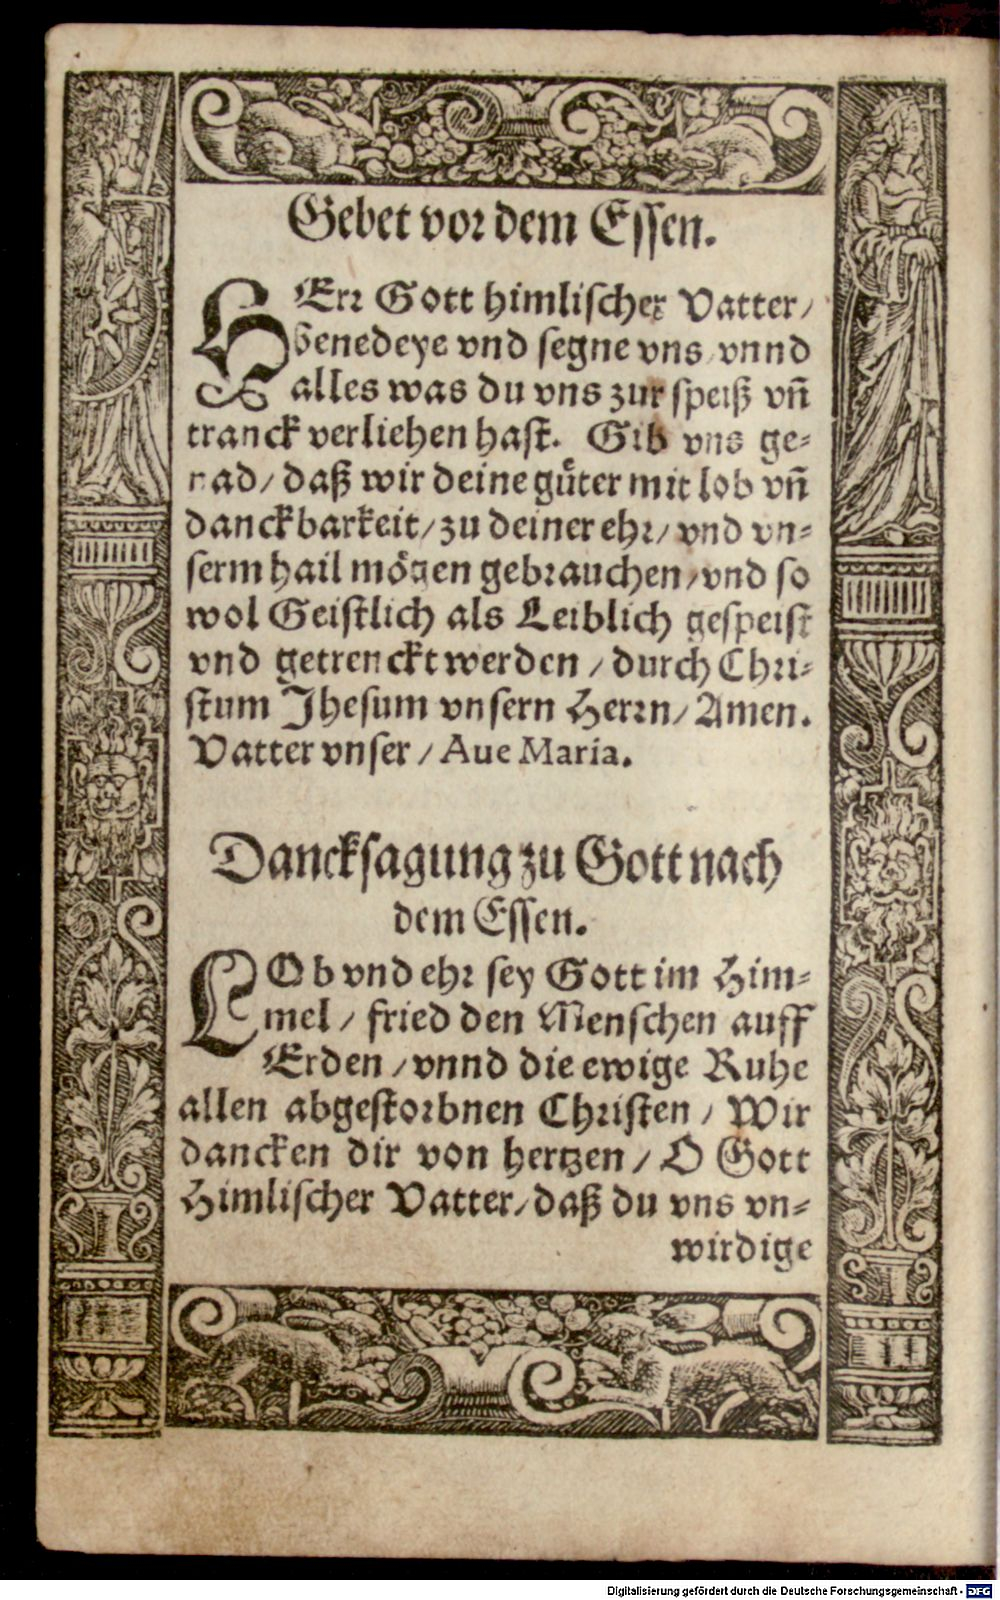 Gebet vor dem Essen.
HErr Gott himlischer Vatter/
benedeye vnd segne vns vnnd
alles was du vns zur speiß vñ
tranck verliehen hast. Gib vns ge-
nad/ daß wir deine guͤter mit lob vñ
danckbarkeit/ zu deiner ehr/ vnd vn-
serm hail moͤgen gebrauchen/ vnd so
wol Geistlich als Leiblich gespeist
vnd getrenckt werden / durch Chri-
stum Jhesum vnsern Herrn/ Amen.
Vatter vnser / Aue Maria.
Dancksagung zu Gott nach
dem Essen.
LOb vnd ehr sey Gott im Him-
mel / fried den Menschen auff
Erden / vnnd die ewige Ruhe
allen abgestorbnen Christen / Wir
dancken dir von hertzen / O Gott
Himlischer Vatter/ daß du vns vn-
wirdige
Digitalisierung gefördert durch die Deutsche Forschungsgemeinschaft - DFG